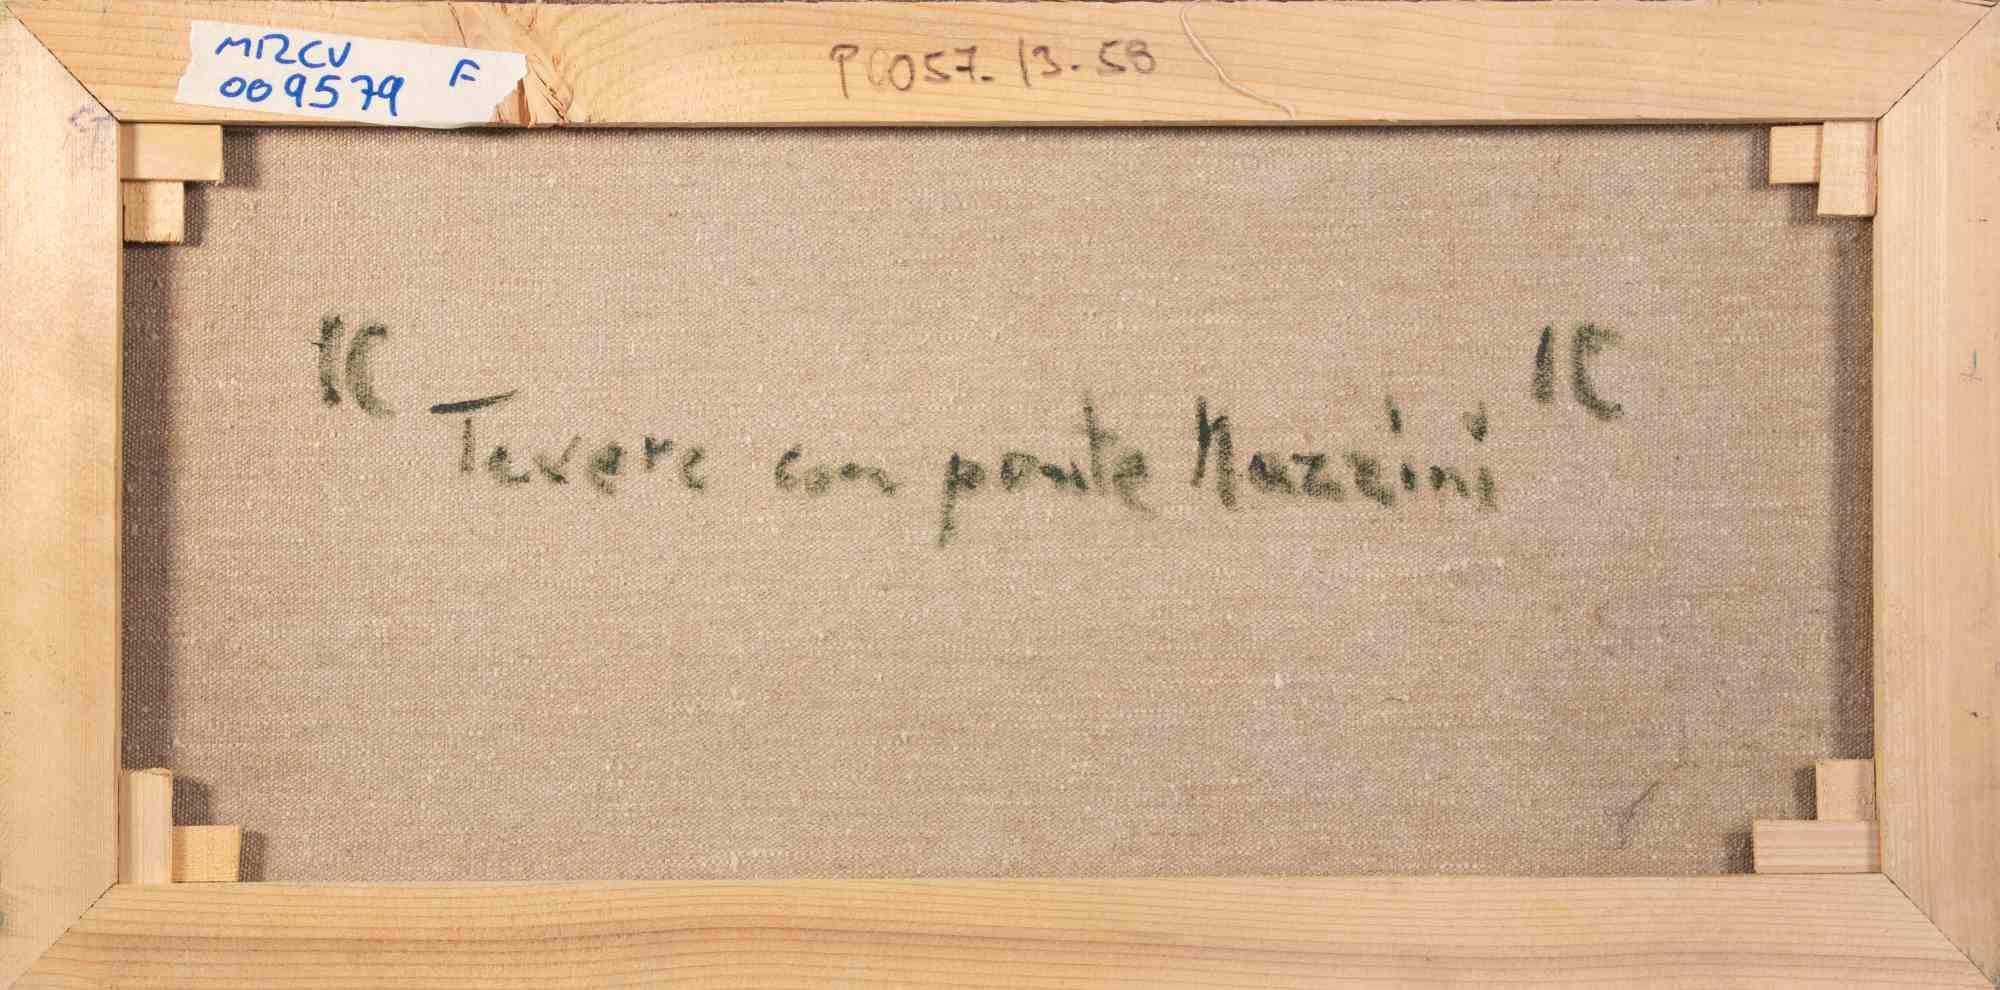 MIRCV
009579 F
PC057-13-58
"Tevere con ponte Mazzini"